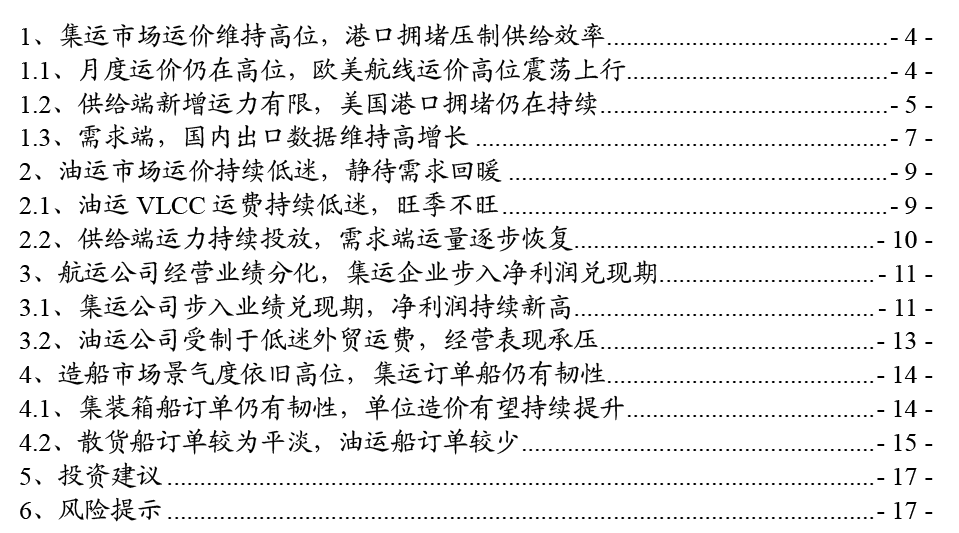 1、集运市场运价维持高位，港口拥堵压制供给效率........................................- 4 -
1.1、月度运价仍在高位，欧美航线运价高位震荡上行.....................................- 4 -
1.2、供给端新增运力有限，美国港口拥堵仍在持续.........................................- 5 -
1.3、需求端，国内出口数据维持高增长...........................................................- 7 -
2、油运市场运价持续低迷，静待需求回暖......................................................- 9 -
2.1、油运 VLCC 运费持续低迷，旺季不旺.......................................................- 9 -
2.2、供给端运力持续投放，需求端运量逐步恢复...........................................- 10 -
3、航运公司经营业绩分化，集运企业步入净利润兑现期...............................- 11 -
3.1、集运公司步入业绩兑现期，净利润持续新高...........................................- 11 -
3.2、油运公司受制于低迷外贸运费，经营表现承压.......................................- 13 -
4、造船市场景气度依旧高位，集运订单船仍有韧性......................................- 14 -
4.1、集装箱船订单仍有韧性，单位造价有望持续提升...................................- 14 -
4.2、散货船订单较为平淡，油运船订单较少...................................................- 15 -
5、投资建议.....................................................................................................- 17 -
6、风险提示.....................................................................................................- 17 -